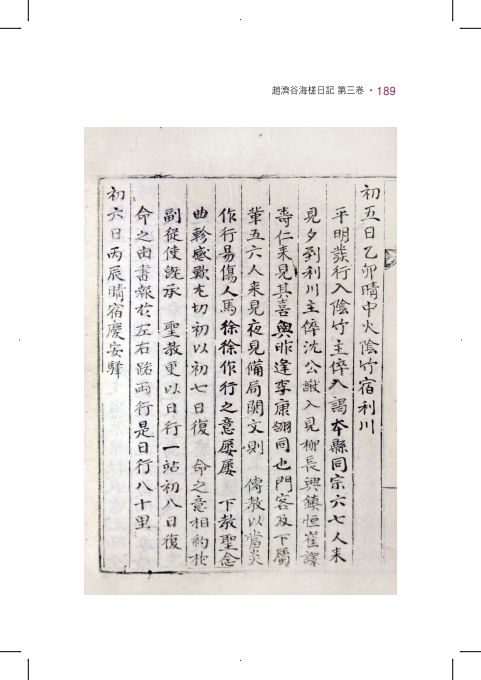 趙濟谷海槎日記 第三卷 · 189
初五日乙卯晴中火陰竹宿利川
平明發行入陰竹主倅入謁本縣同宗六七人来
見夕到利川主倅沈公入見柳長興鎮恒崔譯
壽仁来見其喜與昨逢李康翎同也門客及下屬
輩五六人来見夜見備局関文則 傳教以當炎
作行易傷人馬徐徐作行之意屡屡 下教聖念
曲軫感歎尤切初以初七日復 命之意相約於
副從使旣承 聖教更以日行一站初八日復
命之由書報於左右路両行是日行八十里
初六日丙辰晴宿慶安驛